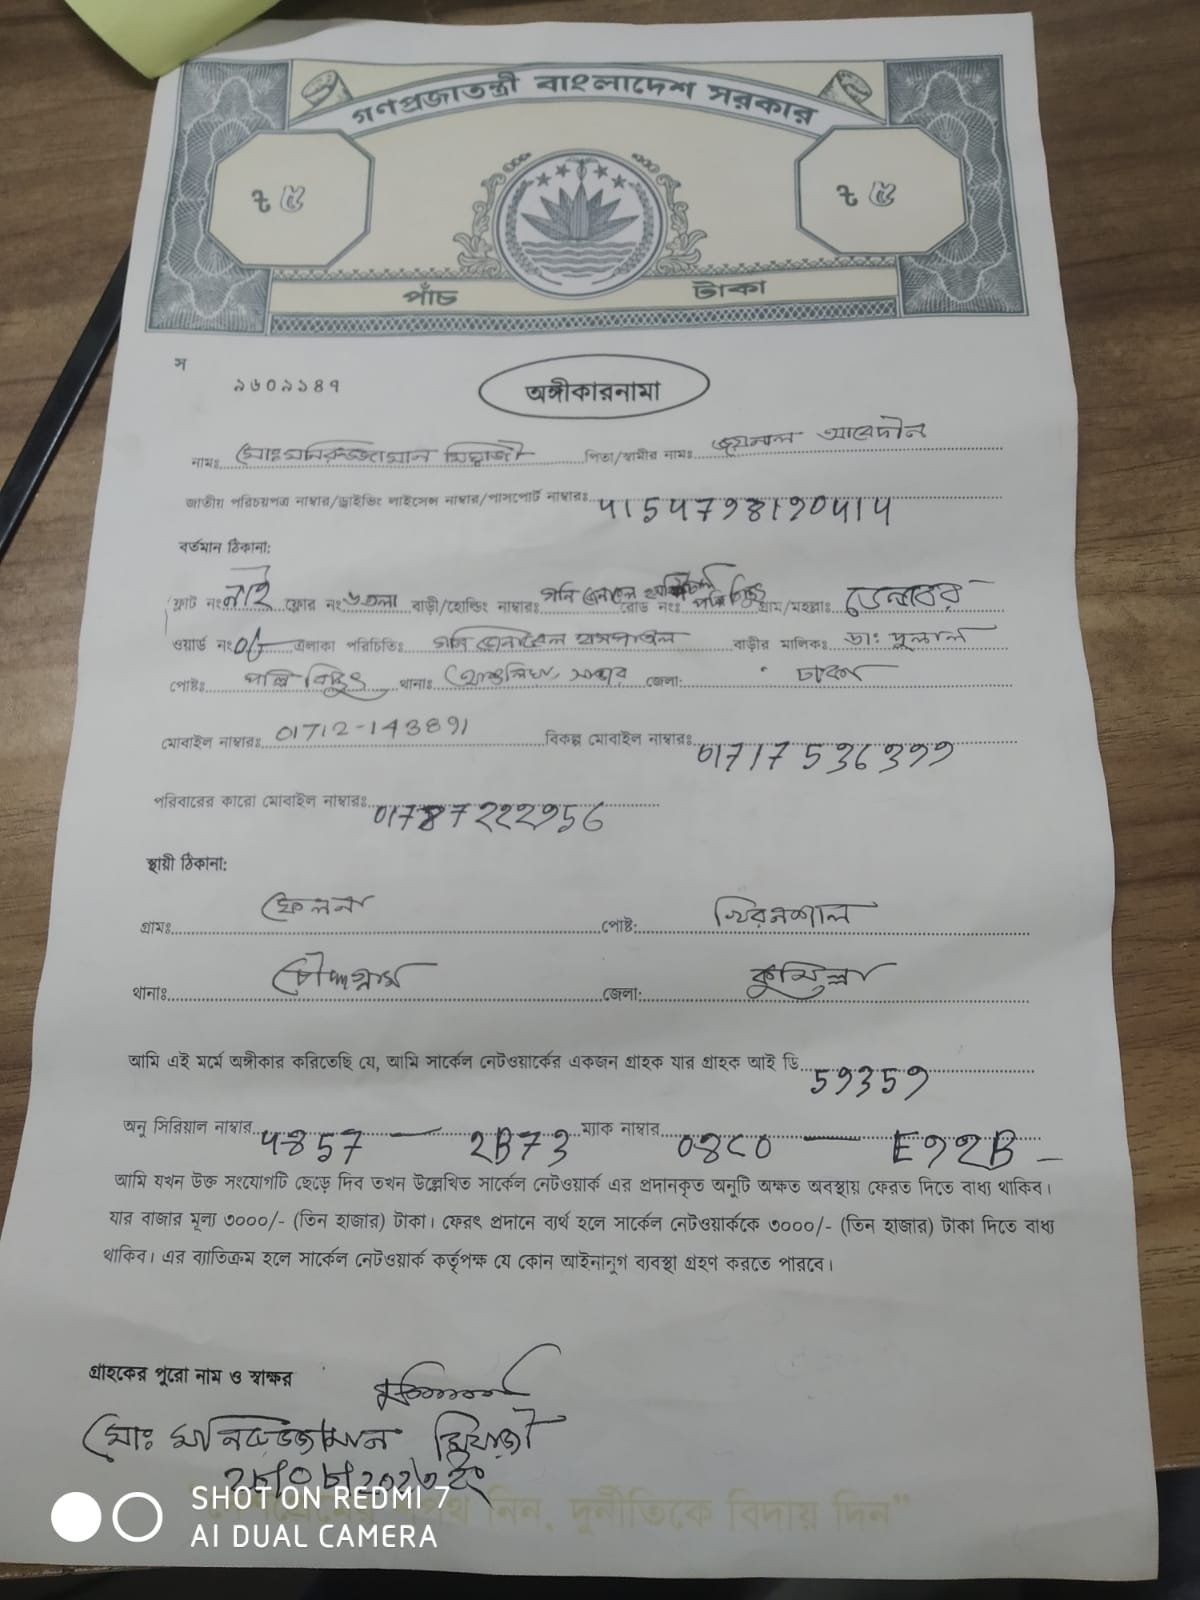 গণপ্রজাতন্ত্রী বাংলাদেশ সরকার
৳ ৫ ৳ ৫
পাঁচ টাকা
স
৯৬০৯১৪৭
অঙ্গীকারনামা
নামঃ মোঃ মনিরুজ্জামান মিয়াজী পিতা/স্বামীর নামঃ জয়নাল আবেদীন
জাতীয় পরিচয়পত্র নাম্বার/ড্রাইভিং লাইসেন্স নাম্বার/পাসপোর্ট নাম্বারঃ
বর্তমান ঠিকানা:
ফ্লাট নংঃ নাই ফ্লোর নংঃ ৬তলা বাড়ী/হোল্ডিং নাম্বারঃ গনি জেনারেল রোড নংঃ পল্লি বিদ্যুৎ গ্রাম/মহল্লাঃ ডেন্ডাবর
ওয়ার্ড নংঃ এলাকা পরিচিতিঃ গনি জেনারেল হাসপাতাল বাড়ীর মালিকঃ ডাঃ দুলাল
পোষ্টঃ পল্লি বিদ্যুৎ থানাঃ আশুলিয়া, সাভার জেলা: ঢাকা
মোবাইল নাম্বারঃ 01712-143891 বিকল্প মোবাইল নাম্বারঃ
পরিবারের কারো মোবাইল নাম্বারঃ
স্থায়ী ঠিকানা:
গ্রামঃ ফেলনা পোষ্ট: খিরনশাল
থানাঃ চৌদ্দগ্রাম জেলা: কুমিল্লা
আমি এই মর্মে অঙ্গীকার করিতেছি যে, আমি সার্কেল নেটওয়ার্কের একজন গ্রাহক যার গ্রাহক আই ডি
অনু সিরিয়াল নাম্বার ম্যাক নাম্বার
আমি যখন উক্ত সংযোগটি ছেড়ে দিব তখন উল্লেখিত সার্কেল নেটওয়ার্ক এর প্রদানকৃত অনুটি অক্ষত অবস্থায় ফেরত দিতে বাধ্য থাকিব।
যার বাজার মূল্য ৩০০০/- (তিন হাজার) টাকা। ফেরৎ প্রদানে ব্যর্থ হলে সার্কেল নেটওয়ার্ককে ৩০০০/- (তিন হাজার) টাকা দিতে বাধ্য
থাকিব। এর ব্যতিক্রম হলে সার্কেল নেটওয়ার্ক কর্তৃপক্ষ যে কোন আইনানুগ ব্যবস্থা গ্রহণ করতে পারবে।
গ্রাহকের পুরো নাম ও স্বাক্ষর
মোঃ মনিরুজ্জামান মিয়াজী
নিন, দুর্নীতিকে বিদায় দিন"
SHOT ON REDMI 7
AI DUAL CAMERA